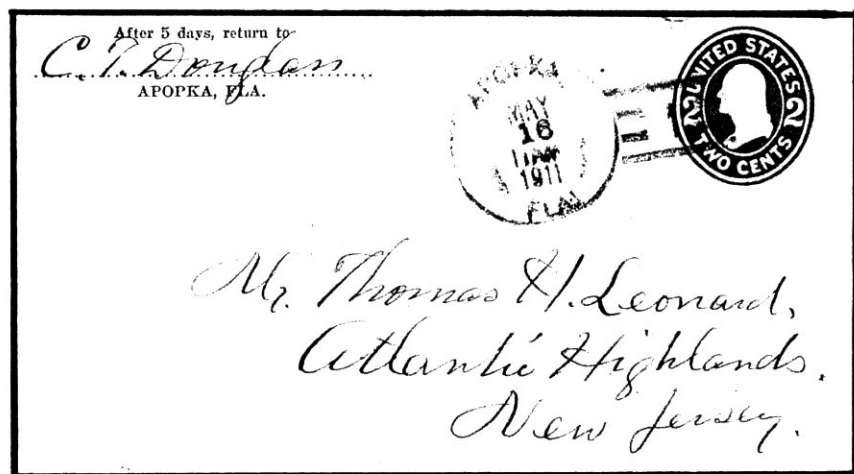 After 5 days, return to
C. T. Douglass
APOPKA, FLA.
APOPKA
MAY
16
11 AM
1911
FLA.
UNITED STATES
2 2
TWO CENTS
Mr. Thomas H. Leonard,
Atlantic Highlands.
New Jersey.